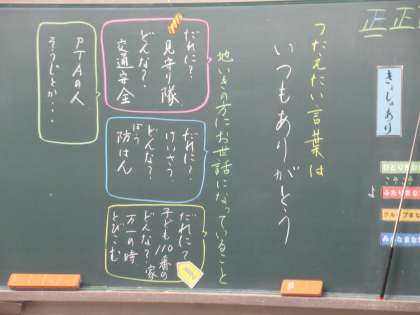 つたえたい言葉は
いつもありがとう
地いきの方にお世話になっていること
だれに？
見守り隊
どんな？
交通安全
だれに？
けいさつ
どんな？
ぼう
防はん
だれにて
子ども110番の家
どんな？
万一の時
とびこむ
PTAの人
そうじとか・・・
ひとりまな
ふたりまな
グループまな
みんなまな